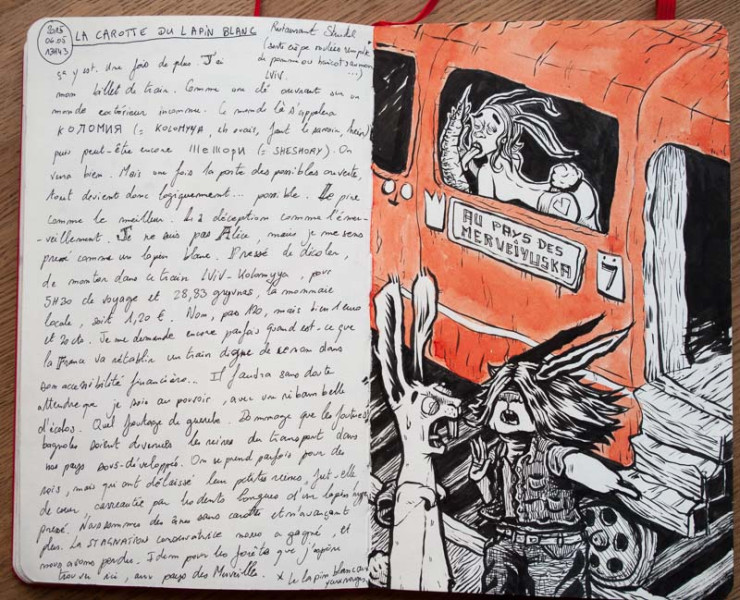 2015
06.05
13H43
LA CAROTTE DU LAPIN BLANC
Restaurant
LViV
ça y est. Une fois de plus. J'ai
mon billet de train. Comme une clé ouvrant sur un
monde extérieur inconnu. Ce monde là s'appelera
КОЛОМИЯ (= KOLOMYYA, eh ouais, faut le savoir, hein)
puis peut-être encore ШЕШОРИ (= SHESHORY). On
verra bien. Mais une fois la porte des possibles ouverte,
tout devient donc logiquement... possible. Le pire
comme le meilleur. La déception comme l'émer-
-veillement. Je ne suis pas Alice, mais je me sens
pressé comme un lapin blanc. Pressé de décoler,
de monter dans ce train LViV-Kolomyya, pour
5H30 de voyage et 28,83 gryvnas, la monnaie
locale, soit 1,20 €. Non, pas 120, mais bien 1 euro
et 20 cts. Je me demande encore parfois quand est-ce que
la France va rétablir un train digne de ce nom dans
son accessibilité financière... Il faudra sans doute
attendre que je sois au pouvoir, avec une ribambelle
d'écolos. Quel foutage de gueule. Dommage que les
bagnoles soient devenues les reines du transport dans
nos pays sous-développés. On se prend parfois pour des
rois, mais qui ont délaissé leur petite reine, fut-elle
de cœur, carrossée par les dents longues d'un lapin
pressé. Nous sommes des ânes sans carotte et n'avançant
plus. La STAGNATION conservatrice nous a gagné, et
nous avons perdu. Idem pour les forêts que j'espère
trouver ici, aux pays des Merveille.
* Le lapin blanc
AU PAYS DES
MERVEIYUSKA
7